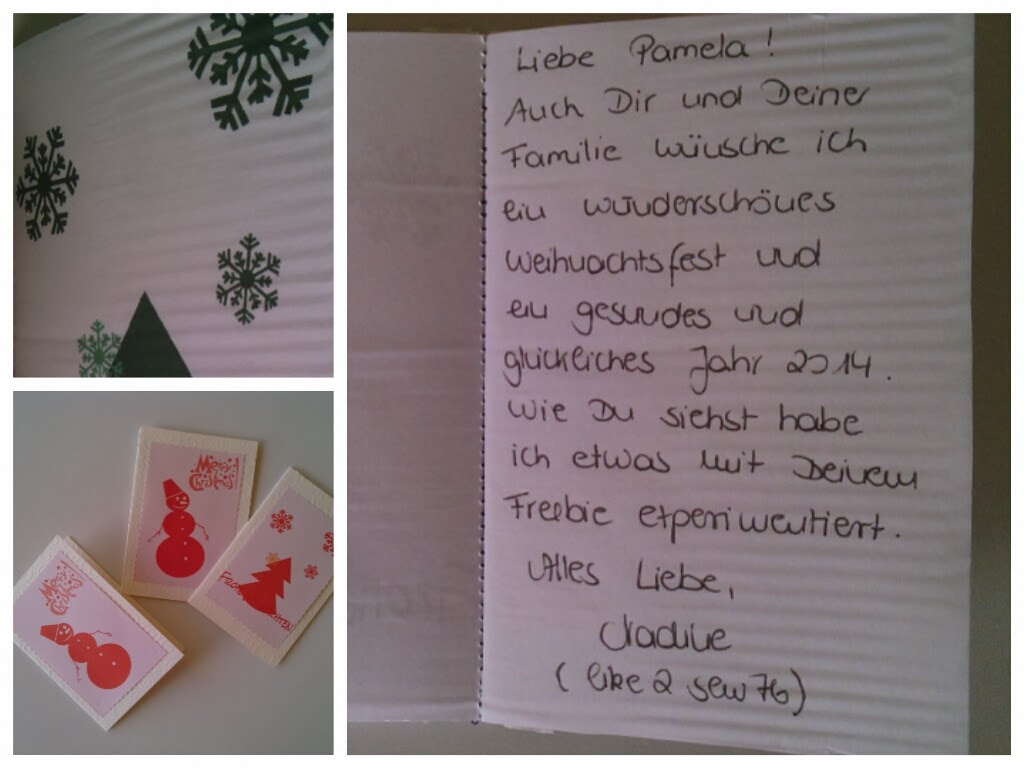 Merry
Christmas
Merry
Christmas
Liebe Pamela!
Auch Dir und Deiner
Familie wünsche ich
ein wunderschönes
Weihnachtsfest und
ein gesundes und
glückliches Jahr 2014.
Wie Du siehst habe
ich etwas mit Deinem
Freebie experimentiert.
Alles Liebe,
Nadine
(like 2 sew 76)